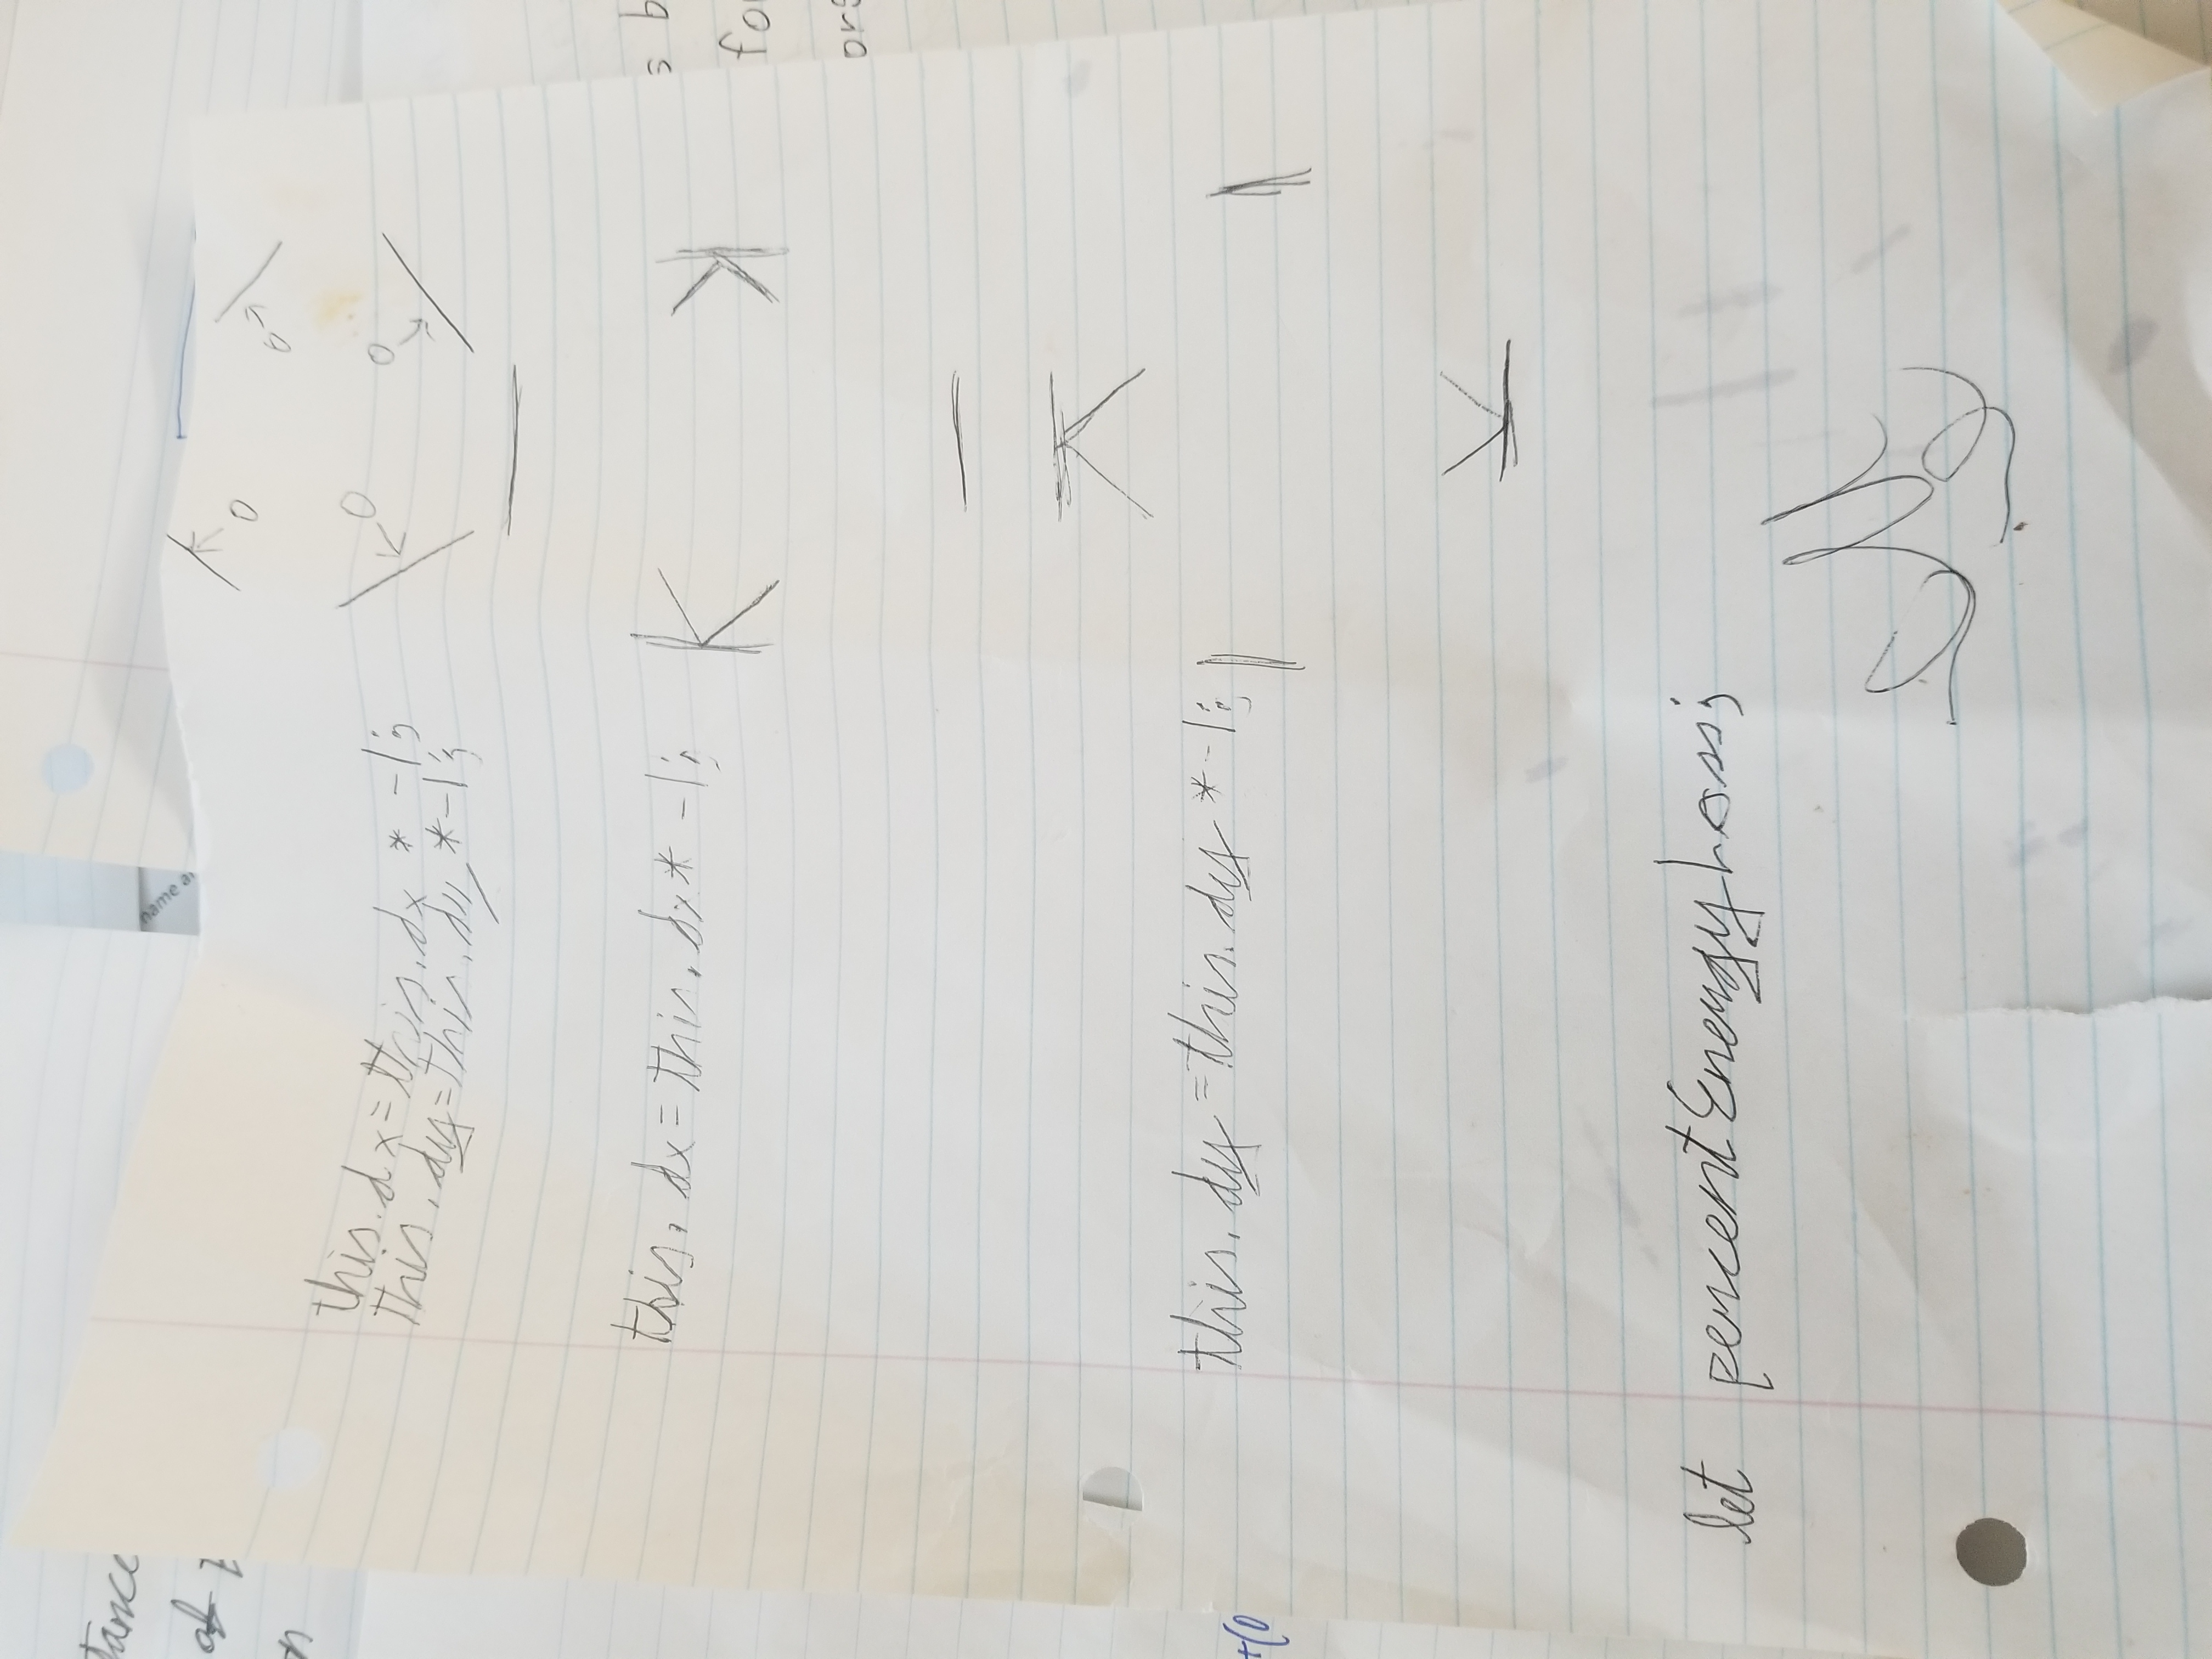 tance
name a
of
n
this.dx=this.dx * -1;
this.dy=this.dy *-1;
this.dx=this.dx* -1;
s b
fo
ors
this.dy=this.dy *-1;
+(0
let percentEnergyLoss;